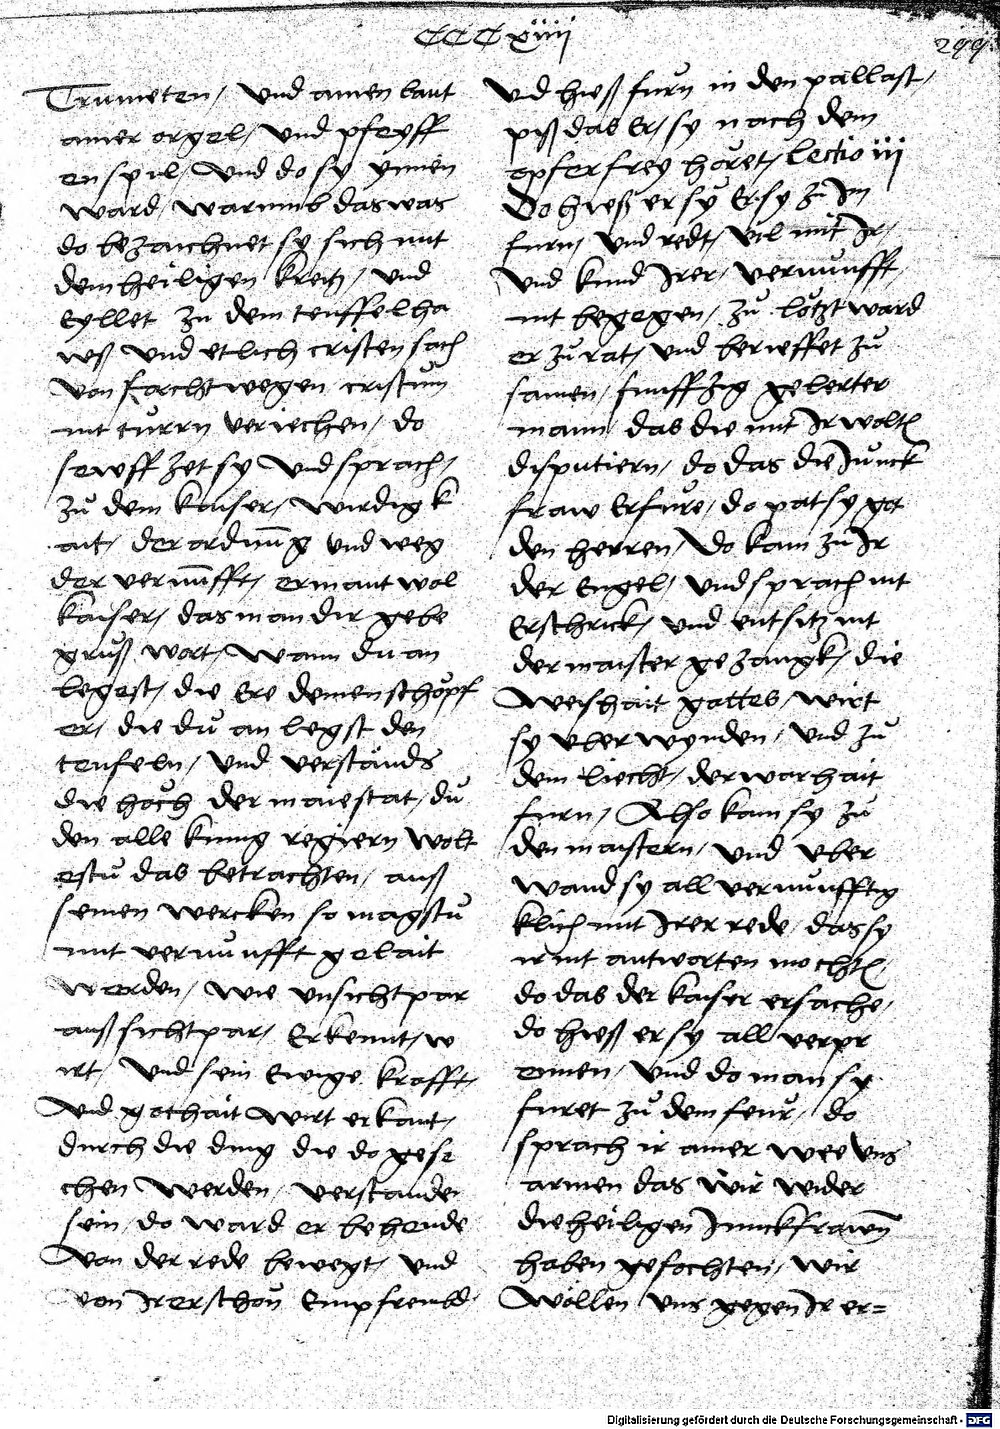 CCCxiiii
299
Trumeten / Vnd amen laut
ainer orgel / Vnd pfeyff
en spil / Vnd do sy ynnen
ward / warumb das was
do bezaichnet sy sich mit
dem heiligen kreitz / vnd
Eyllet zu dem teuffel ha
weß vnd etlich cristen sach
von forcht wegen cristum
nit turrn veriechen / do
sewffzet sy vnd sprach /
zů dem kaiser / wirdigk
ait / der ordnung vnd weg
der vernufft / ermant wol
kaiser / das man dir gebe
gruß wort / wann du an
legest / die Ere dem schöpf
er / die du an legst den
teufeln / vnd verstands
die höch der maiestat / du
den alle kunig regiern wolt
estu das betrachten / auß
seinen wercken so magstu
mit vernunfft gelait
werden / wie vnsichtpar
auß sichtpar / Erkennt / w
irt / vnd sein Ewige krafft /
Vnd gothait wirt erkant /
durch die ding die do gese
chen werden / verstanden
sein / do ward er behende
von der rede bewegt / vnd
von Irer schön Empfremd
vnd hieß furn in den pallast /
piß das Er / sy nach dem
opfer frey höret / lectio iii
Do hieß er sy Er sy zu Im
furn / vnd redt / vil mit Ir /
Vnd kund Irer / vernunfft /
nit begegen / zu lötzt ward
er zu rat / vnd berwffet zu
samen / funffzig gelerter
mann das die mit Ir wolten
disputiern / do das die Junck
fraw Erfure / do pat sy got
den herren / Do kam zu Ir
der Engel / vnd sprach nit
Erschrick / vnd entsitz nit
der maister gezangk / die
Weishait gottes / wirt
sy vberwynden / vnd zu
dem liecht / der warhait
furn / Also kam sy zu
den maistern / vnd vber
wand sy all vernunfftig
klich mit Irer rede / das sy
ir nit antworten mochten
do das der kaiser ersache /
do hieß er sy all verpr
ennen / vnd do man sy
furet zu dem feur / do
sprach ir ainer wee vns
armen das wir wider
die heiligen Junckfrawen
haben gefochten / wir
Wöllen vns gegen Ir er=
Digitalisierung gefördert durch die Deutsche Forschungsgemeinschaft - DFG